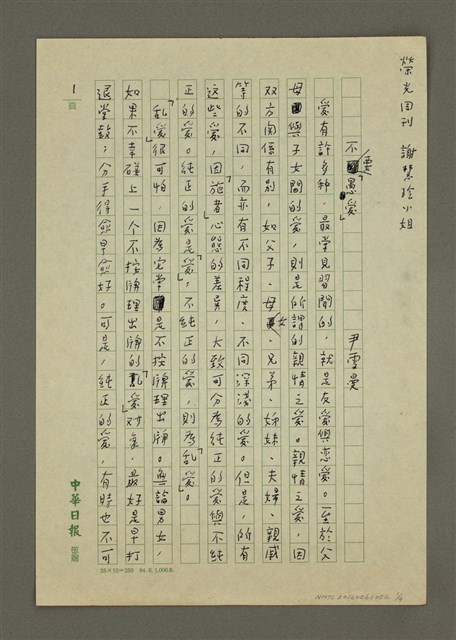 榮光周刊 謝慧玲小姐
不要「愚愛」
尹雪曼
愛有許多種，最常見習聞的，就是友愛與戀愛。至於父
母與子女間的愛，則是所謂的親情之愛。親情之愛，因
双方關係有別，如父子、母女、兄弟、姊妹、夫婦、親戚
等的不同，而亦有不同程度、不同深淺的愛。但是，所有
這些愛，因「施」者心態的差異，大致可分為純正的愛與不純
正的愛。純正的愛是「愛」，不純正的愛，則為「亂愛」。
「亂愛」很可怕，因為它常是不按牌理出牌。無論男女，
如果不幸碰上一個不按牌理出牌的「亂愛」對象，最好是早打
退堂鼓；分手得愈早愈好。可是，純正的愛，有時也不可
1
頁
中華日報
稿紙
25×10=250 84.6.1,000本